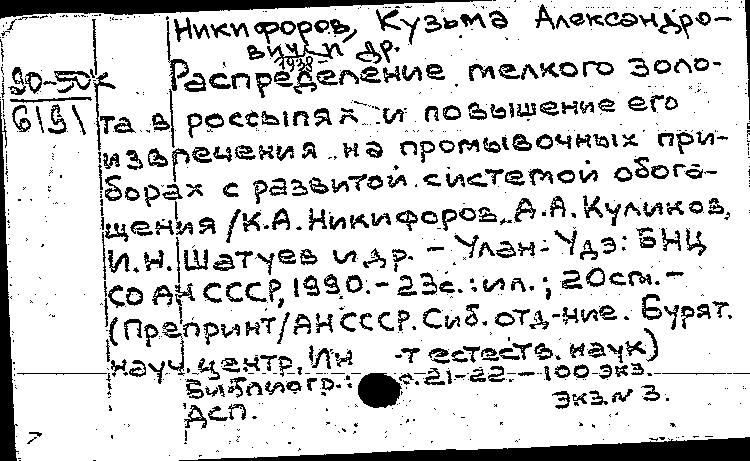 Никифоров, Кузьма Александро-
вич и др.
1938-
90-50к Распределение мелкого золо-
6191 та в россыпях и повышение его
извлечения на промывочных при-
борах с развитой системой обога-
щения / К.А. Никифоров, А.А. Куликов,
И.Н. Шатуев и др. - Улан-Удэ: БНЦ
СО АН СССР, 1990. - 23с.: ил.; 20см. -
(Препринт / АН СССР. Сиб. отд-ние. Бурят.
науч. центр, Ин -т естеств. наук)
Библиогр.: с. 21-22. - 100 экз.
ДСП. Экз. № 3.